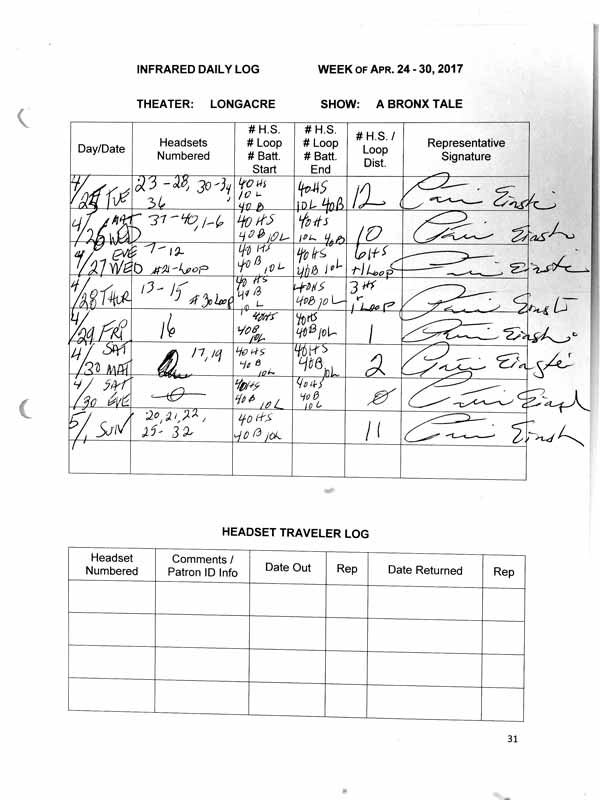 INFRARED DAILY LOG WEEK OF APR. 24 - 30, 2017
THEATER: LONGACRE SHOW: A BRONX TALE
Day/Date Headsets Numbered # H.S. # Loop # Batt. Start # H.S. # Loop # Batt. End # H.S. / Loop Dist. Representative Signature
4/25 TUE 23-28, 30-34, 36 40HS 10L 40B 40HS 10L 40B 12
4/26 MAT WED 37-40, 1-6 40HS 40B 10L 40HS 10L 40B 10
4/27 EVE WED 7-12 #21-Loop 40HS 40B 10L 40HS 40B 10L 6HS +1 Loop
4/28 THUR 13-15 #30 Loop 40HS 40B 10L 40HS 40B 10L 3HS 1 Loop
4/29 FRI 16 40HS 40B 10L 40HS 40B 10L 1
4/30 SAT MAT 17,19 40HS 40B 10L 40HS 40B 10L 2
4/30 SAT EVE 0 40HS 40B 10L 40HS 40B 10L 0
5/1 SUN 20,21,22, 25-32 40HS 40B 10L 11
HEADSET TRAVELER LOG
Headset Numbered Comments / Patron ID Info Date Out Rep Date Returned Rep
31